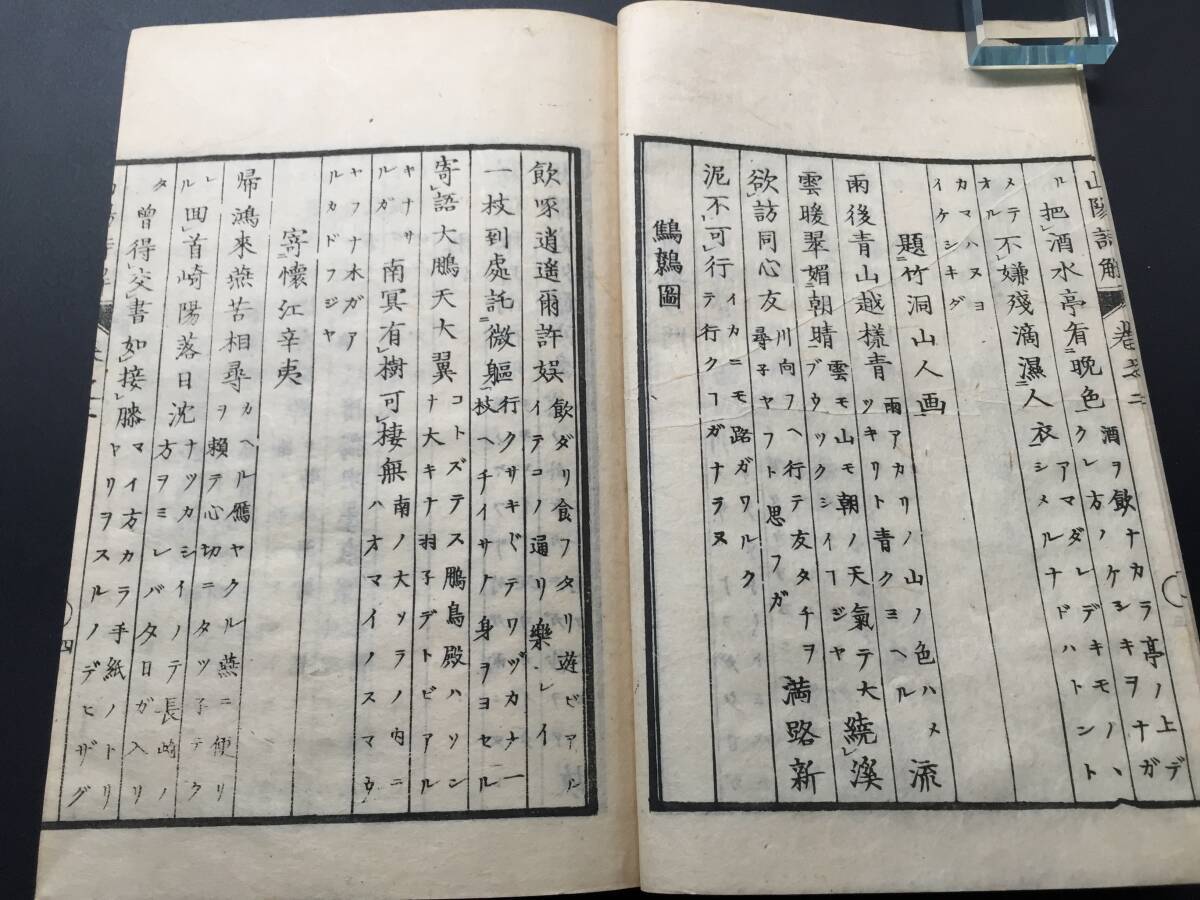 山陽詩解 卷之二
ル把酒水亭有晩色 酒ヲ飲ナカラ亭ノ上デ クレ方ノケシキヲナガ
メテオル 不嫌殘滴濕人衣 アマダレデキモノヽ シメルナドハトント
カマハヌヨ イケシキダ
題竹洞山人画
雨後青山越様青 雨アカリノ山ノ色ハメ ツキリト青クミヘル 流
雲暖翠媚朝晴 雲モ山モ朝ノ天氣テ大 ブウツクシイヿジヤ 繞溪
欲訪同心友 川向フヘ行テ友タチヲ 尋子ヤフト思フガ 満路新
泥不可行 イカニモ路ガワルク テ行クヿガナラヌ
鷦鷯圖
飲啄逍遥爾許娯 飲ダリ食フタリ遊ビアル イテコノ通リ樂シイ
一枝到處託微軀 行クサキ〴〵デワヅカナ一 枝ヘチイサナ身ヲヨセル
寄語大鵬天大翼 コトズテス鵬鳥殿ハソン ナ大キナ羽子デトビアル
キナサルガ 南冥有樹可棲無 南ノ大ツラノ内ニ ハオマイノスマウ
ヤフナ木ガア ルカドフジヤ
寄懐江辛夷
帰鴻來燕苦相尋 カヘル鴈ヤクル燕ニ便リ ヲ頼テ心切ニタツ子テク
レル 囘首崎陽落日沈 ナツカシイノテ長崎ノ 方ヲミレバタ日ガ入リ
タ 曾得交書如接膝 マイ方カラ手紙ノトリ ヤリヲスルノデヒザグ
四